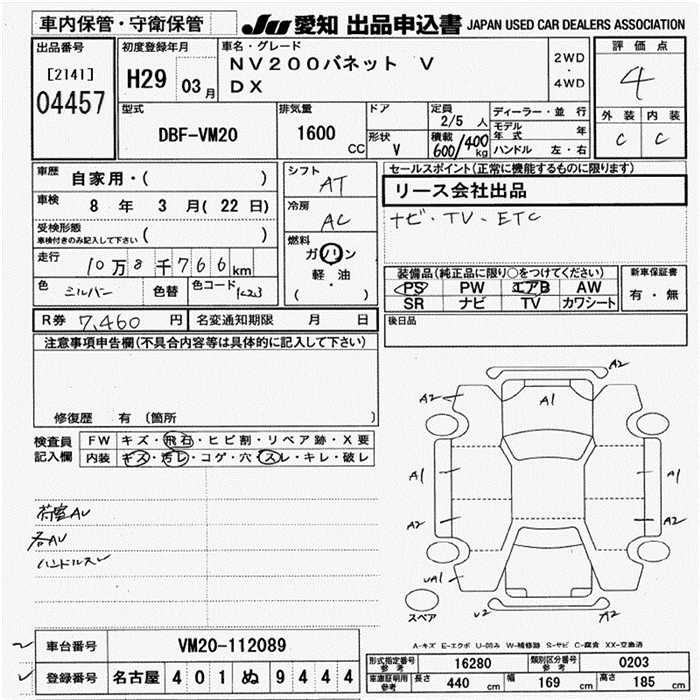 車内保管・守衛保管 JU 愛知 出品申込書 JAPAN USED CAR DEALERS ASSOCIATION
出品番号 初度登録年月 車名・グレード 評価点
[2141] H29 03月 NV200バネット V 2WD・4WD 4
04457 DX
型式 排気量 ドア 定員 2/5人 ディーラー・並行 外装 内装
DBF-VM20 1600 CC 形状 V 積載 600/400 kg モデル年式 年 C C
ハンドル 左・右
車歴 自家用・( ) シフト AT セールスポイント(正常に機能するものに限ります)
車検 8年 3月(22日) 冷房 AC リース会社出品
受検形態 車検付きのみ記入して下さい ( ) ナビ・TV・ETC
走行 10万8千766km 燃料 ガソリン・軽油 ( )
装備品(純正品に限り○をつけてください) 新車保証書
色 シルバー 色替 色コード K23 PS PW エアB AW 有・無
SR ナビ TV カワシート
R券 7,460円 名変通知期限 月 日 後日品
注意事項申告欄(不具合内容等は具体的に記入して下さい)
修復歴 有 (箇所 )
検査員記入欄 FW キズ・飛石・ヒビ割・リペア跡・X要
内装 キズ・汚レ・コゲ・穴・スレ・キレ・破レ
荷室AU
各AU
ハンドルスレ
A2
A2 A1 A2
A1 A1
A2 A2
UA1
スペア U2 A2
A-キズ E-エクボ U-凹み W-補修跡 S-サビ C-腐食 XX-交換済
車台番号 VM20-112089
登録番号 名古屋 401 ぬ 9444
形式指定番号 参考 16280 類別区分番号 参考 0203
車庫証明用 参考 長さ 440 cm 幅 169 cm 高さ 185 cm